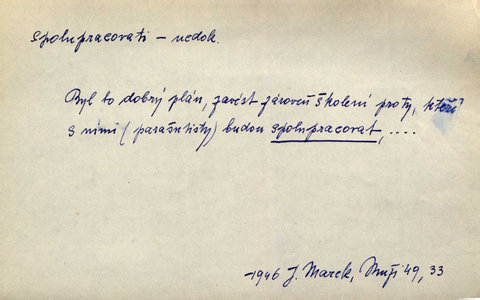 spolupracovati – nedok.
Byl to dobrý plán, zavést zároveň školení pro ty, kteří
s nimi (parašutisty) budou spolupracovat, ....
1946 J. Marek, Muži 49, 33